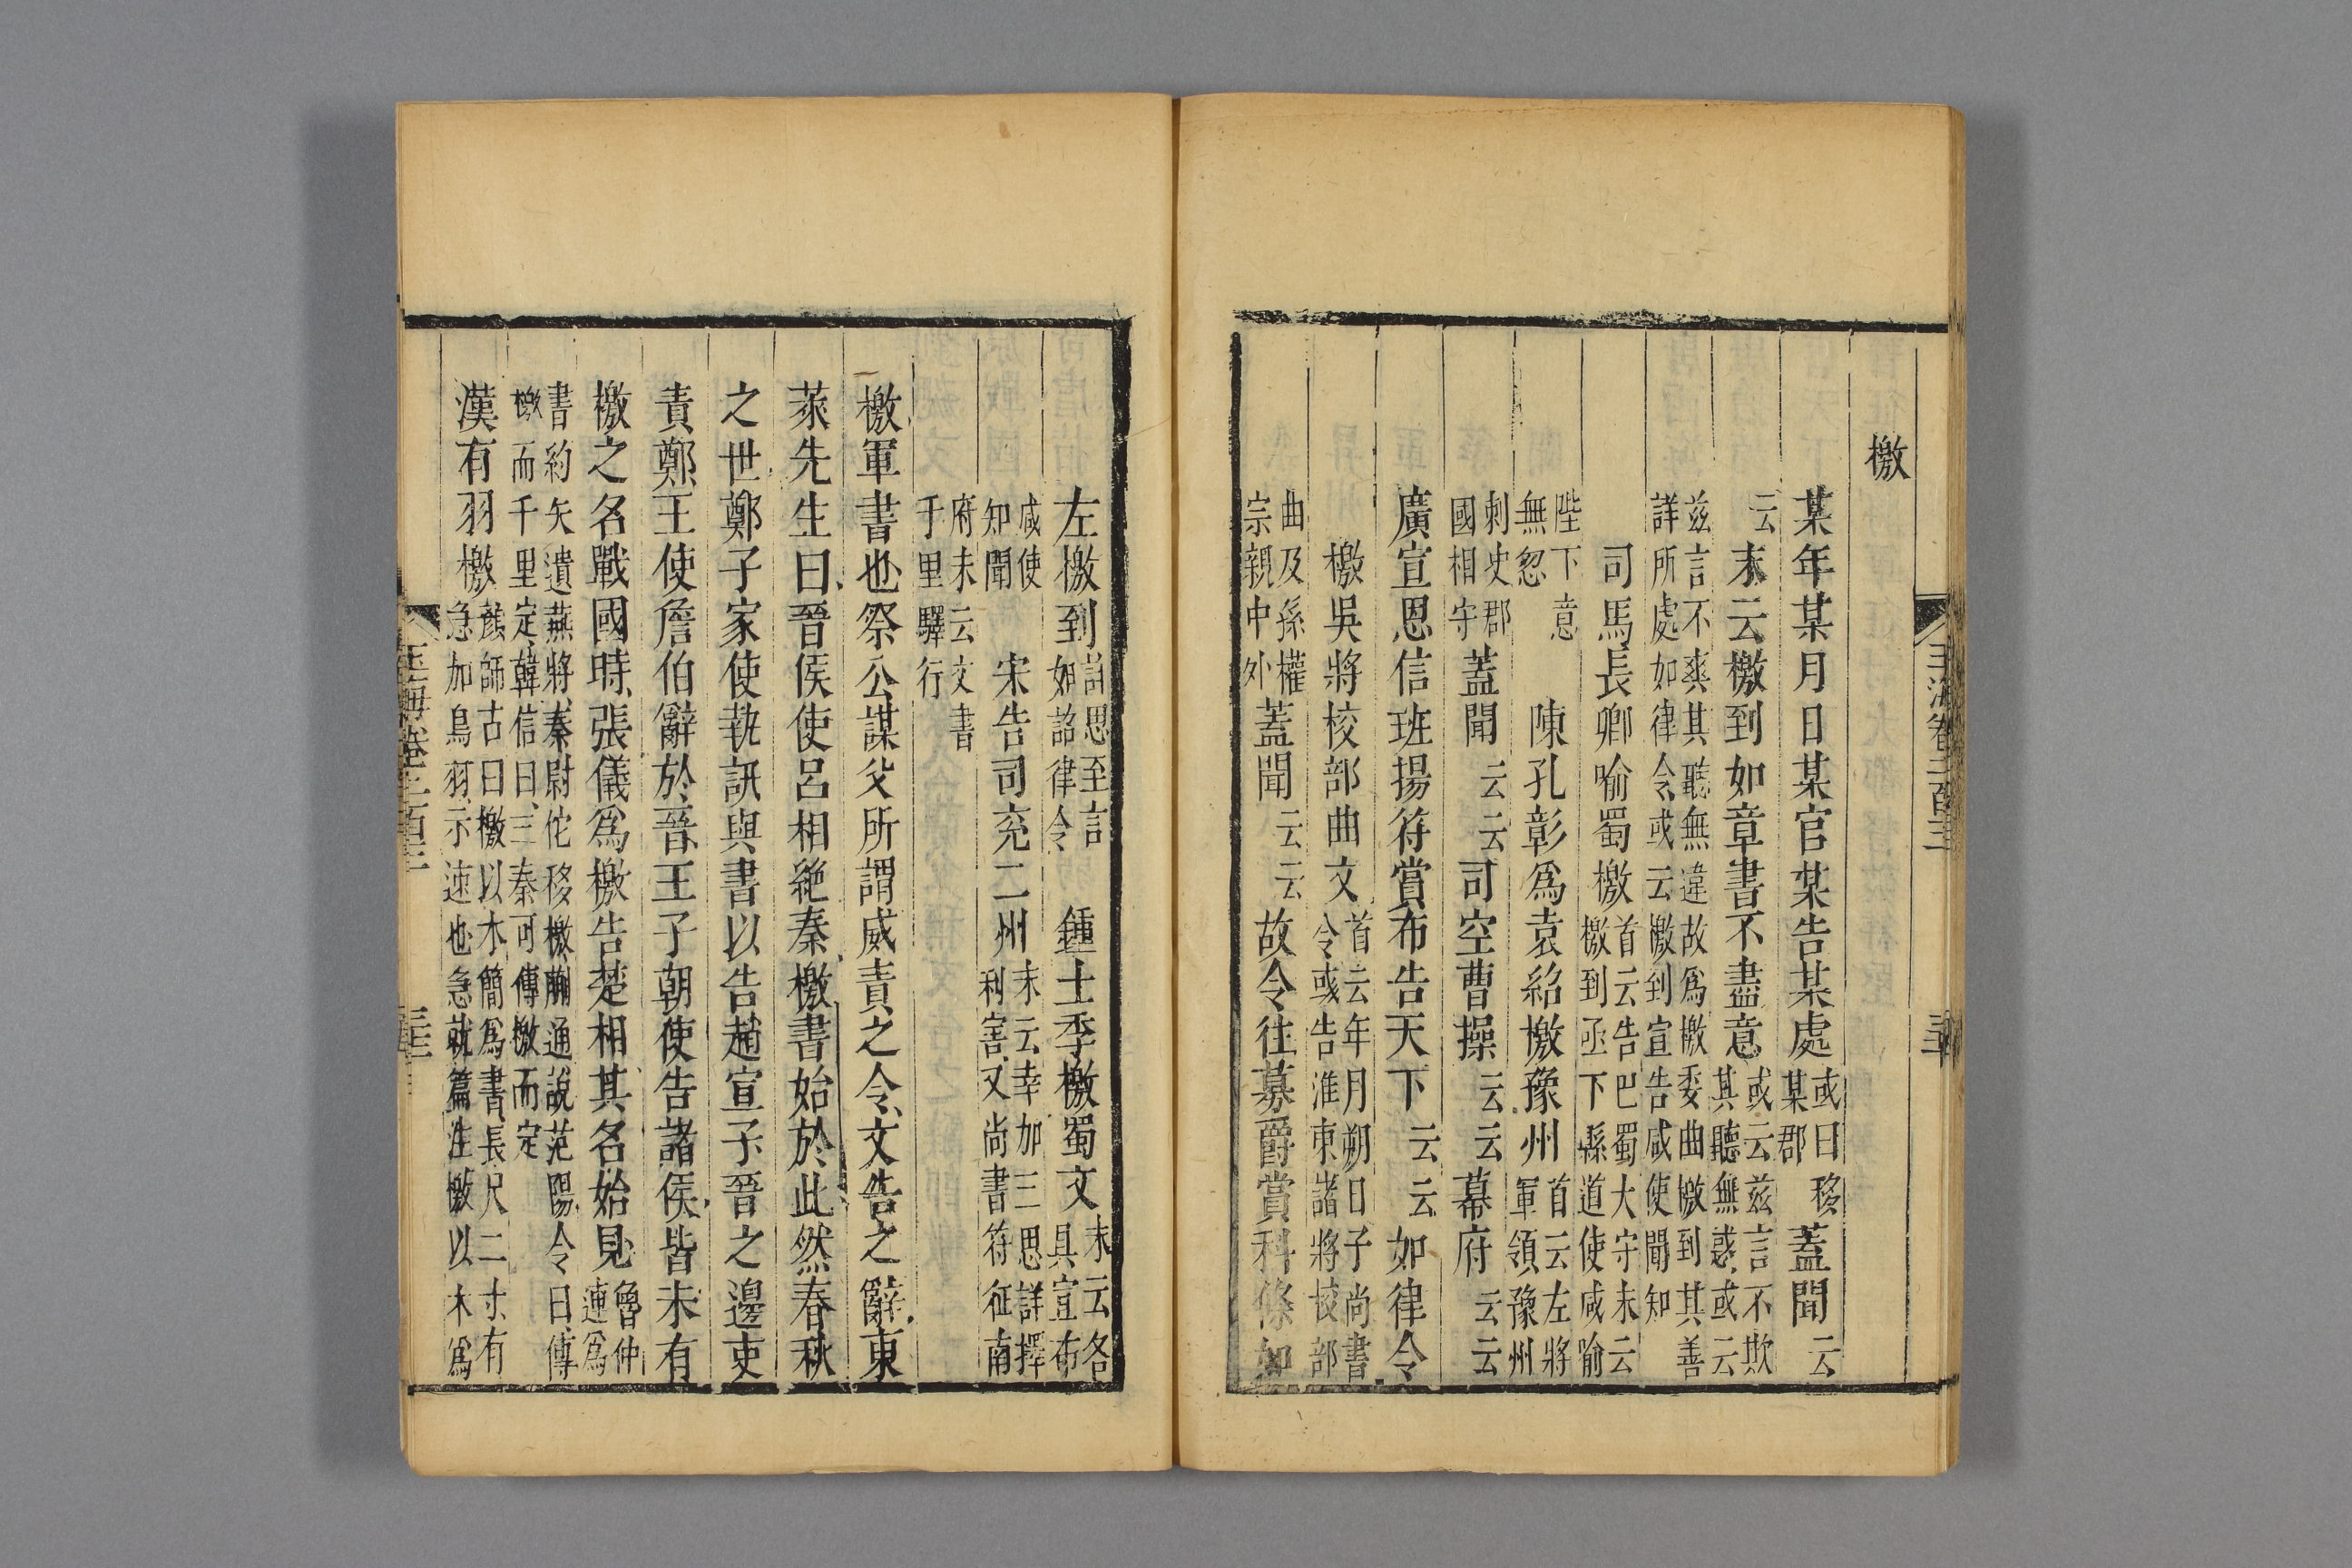 檄
某年某月日某官某告某處或曰移某郡蓋聞云
云末云檄到如章書不盡意或云茲言不欺其聽無惑或云
茲言不爽其聽無違故爲檄委曲檄到其善詳所處如律令或云檄到宣告咸使聞知
司馬長卿喻蜀檄首云告巴蜀大守末云檄到亟下縣道使咸喻
陛下意無忽　陳孔彰爲袁紹檄豫州首云左將軍領豫州
刺史郡國相守蓋聞云云司空曹操云云幕府云云
廣宣恩信班揚符賞布告天下云云如律令
檄吳將校部曲文首云年月朔日子尚書令或告淮東諸將校部
曲及孫權宗親中外蓋聞云云故令往募爵賞科條如
左檄到詳思至言如詔律令　鍾士季檄蜀文末云各具宣布
咸使知聞　宋告司兖二州末云幸加三思詳擇利害又尚書符征南
府末云文書千里驛行
檄軍書也祭公謀父所謂威責之令文告之辭東
萊先生曰晉侯使呂相絶秦檄書始於此然春秋
之世鄭子家使執訊與書以告趙宣子晉之邊吏
責鄭王使詹伯辭於晉王子朝使告諸侯皆未有
檄之名戰國時張儀爲檄告楚相其名始見魯仲連爲
書約矢遺燕將秦尉佗移檄蒯通說范陽令曰傳檄而千里定韓信曰三秦可傳檄而定
漢有羽檄顏師古曰檄以木簡爲書長尺二寸有急加鳥羽示速也急就篇注檄以木爲
玉海卷二百三